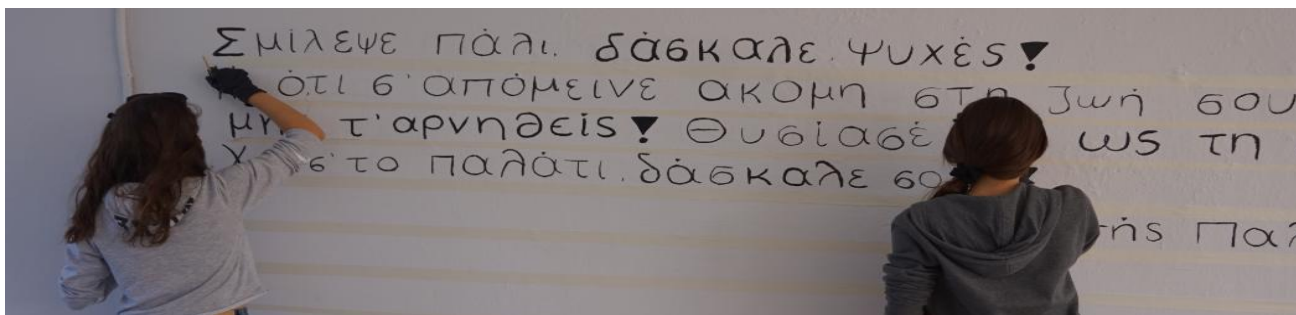 Σμίλεψε πάλι. δάσκαλε. ψυχές!
ότι σ'απόμεινε ακόμη στη ζωή σου
μη τ'αρνηθείς! Θυσίασέ ως τη
σ'το παλάτι. δάσκαλε